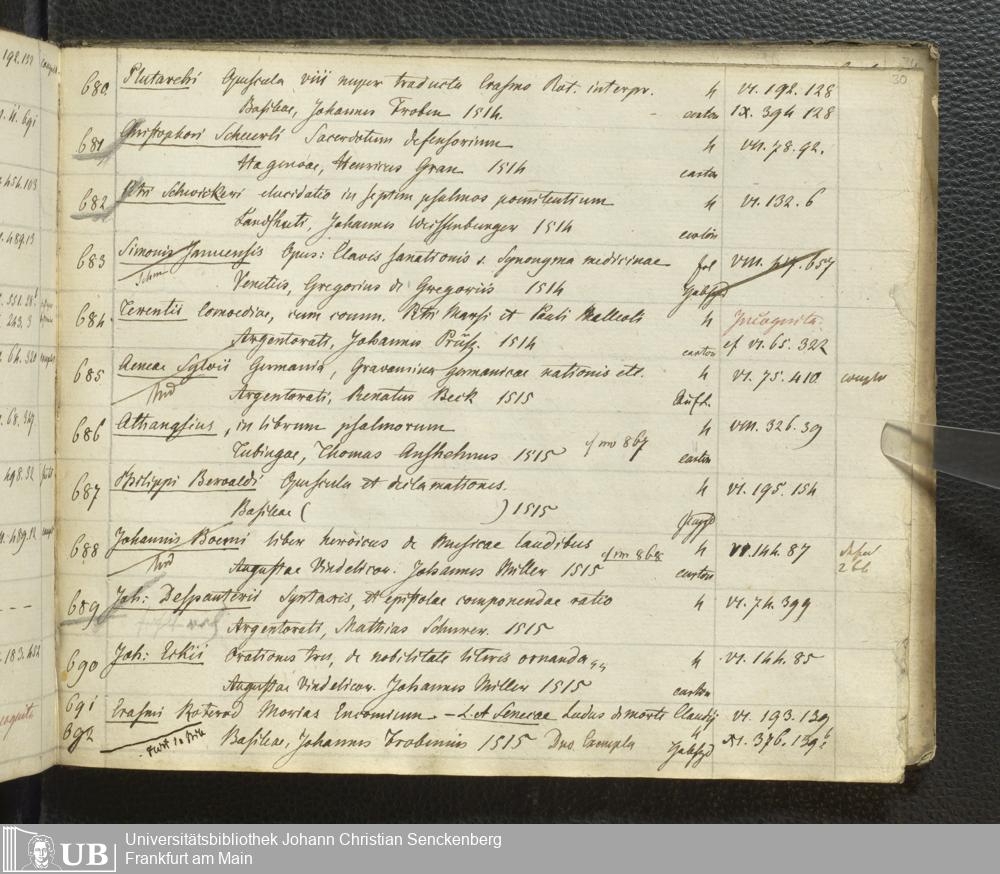 30
680. Plutarchi Opuscula viii nuper traducta Erasmo Rot. interpr. 4 VI. 192. 128
Basileae, Johannes Froben 1514. carton IX. 394 128
681 Christophori Scheuerli Sacerdotum defensorium 4 VII. 78. 92.
Hagenoae, Henricus Gran 1514 carton
682 Petri Schwickeri elucidatio in septem psalmos poenitentium 4 VI. 132. 6
Landshuti, Johannes Weissenburger 1514 carton
683 Simonis Januensis Opus: Clavis sanationis s. Synonyma medicinae fol VIII. 657
Venetiis, Gregorius de Gregoriis 1514
684. Terentii Comoediae, cum comm. Petri Marsi et Pauli Malleoli 4 Incognita.
Argentorati, Johannes Prüss. 1514 carton cf VI. 65. 322
685 Aeneae Sylvii Germania, Gravamina germanicae nationis etc. 4 VI. 75. 410.
Argentorati, Renatus Beck 1515
686 Athanasius, in librum psalmorum 4 VIII. 326. 39
Tubingae, Thomas Anshelmus 1515 867 carton
687 Philippi Beroaldi Opuscula et declamationes. 4 VI. 195. 154
Basileae ( ) 1515
688 Johannis Boemi liber heroicus de Musicae laudibus 4 VI. 144. 87
Augustae Vindelicor. Johannes Miller 1515 868 carton
689 Joh: Despauterii Syntaxis, et epistolae componendae ratio 4 VI. 74. 399
Argentorati, Mathias Schurer. 1515
690 Joh: Eckii Orationes tres, de nobilitate literis ornanda 4 VI. 144. 85
Augustae Vindelicor. Johannes Miller 1515 carton
691 Erasmi Roterod Morias Encomium. – L. A Senecae Ludus de morte Claudij VI. 193. 139
692 Basileae, Johannes Frobenius 1515 Duo Exempla 4 XI. 376. 139
Universitätsbibliothek Johann Christian Senckenberg
UB Frankfurt am Main